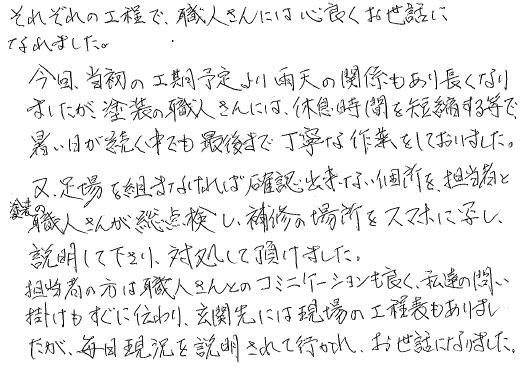 それぞれの工程で、職人さんには心良くお世話に
なれました。
今回、当初の工期予定より雨天の関係もあり長くなり
ましたが、塗装の職人さんには、休息時間を短縮する等で
暑い日が続く中でも最後まで丁寧な作業をしておいました。
又、足場を組まなければ確認出来ない個所を、担当者と
塗装の職人さんが総点検し、補修の場所をスマホに写し、
説明して下さり、対処して頂けました。
担当者の方は職人さんとのコミニケーションも良く、私達の問い
掛けもすぐに伝わり、玄関先には現場の工程表もありまし
たが、毎日現況を説明されて行かれ、お世話になりました。